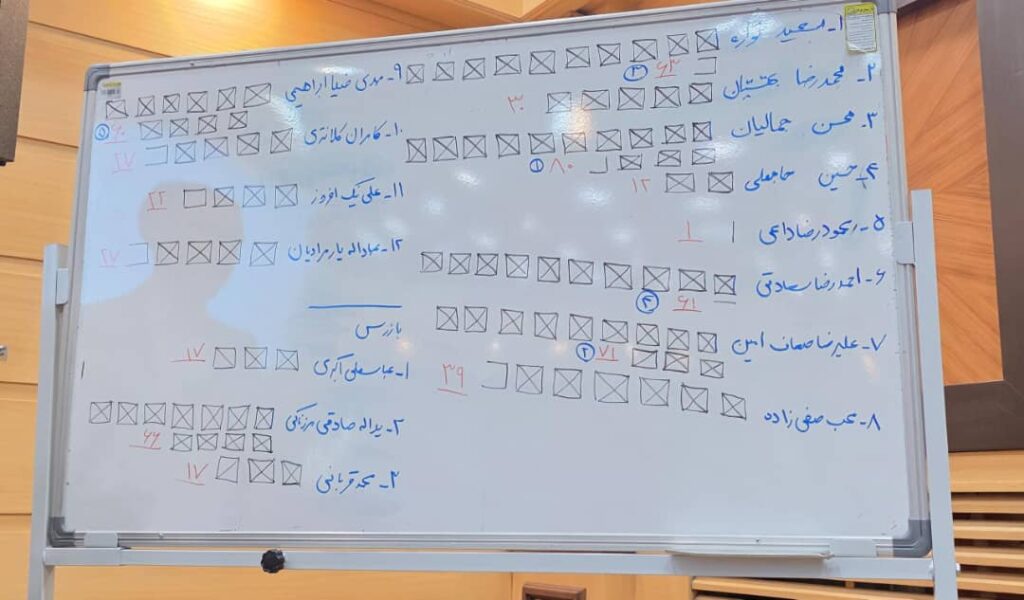 ۱- سعید
۶۳ ③
۲- محمدرضا بهشتیان
۳۰
۳- محسن جمالیان
۸۰ ①
۴- حسین حاجعلی
۱۲
۵- محمودرضا داعی
۱
۶- احمدرضا سعادتی
۶۱ ④
۷- علیرضا صحاف امین
۷۱ ②
۸- صفی زاده
۳۹
۹- مهدی ضیا ابراهیمی
۶۰ ⑤
۱۰- کامران کلانتری
۲۷
۱۱- علی نیک افروز
۲۲
۱۲- عباداله یارمرادیان
۲۷
بازرس
۱- عباسعلی اکبری
۱۷
۲- یداله صادقی
۶۶
۳- محمد قربانی
۱۷